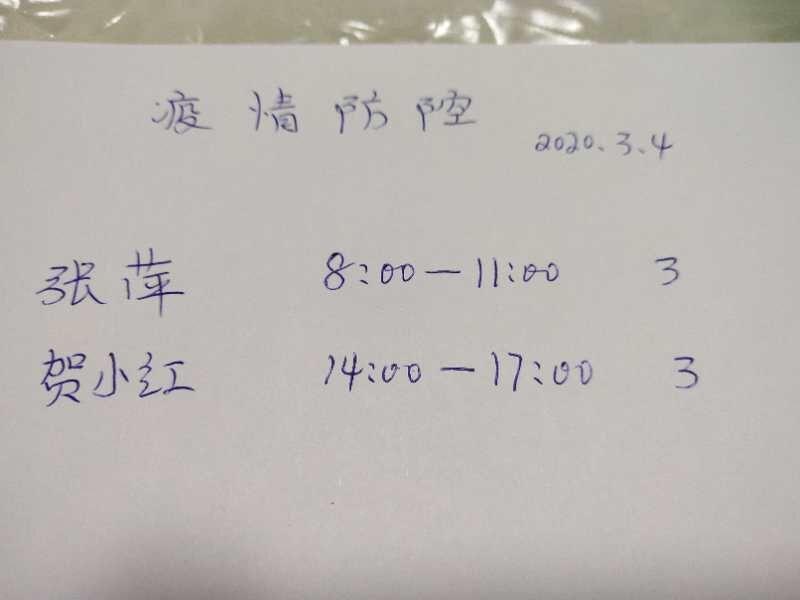 疫情防控
2020.3.4
张萍 8:00—11:00 3
贺小红 14:00—17:00 3